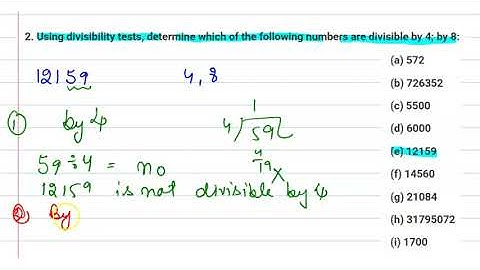 2. Using divisibility tests, determine which of the following numbers are divisible by 4; by 8:
(a) 572
(b) 726352
(c) 5500
(d) 6000
(e) 12159
(f) 14560
(g) 21084
(h) 31795072
(i) 1700
12159 4, 8
① by 4
1
4 59
4
19 ×
59 ÷ 4 = no
12159 is not divisible by 4
② By